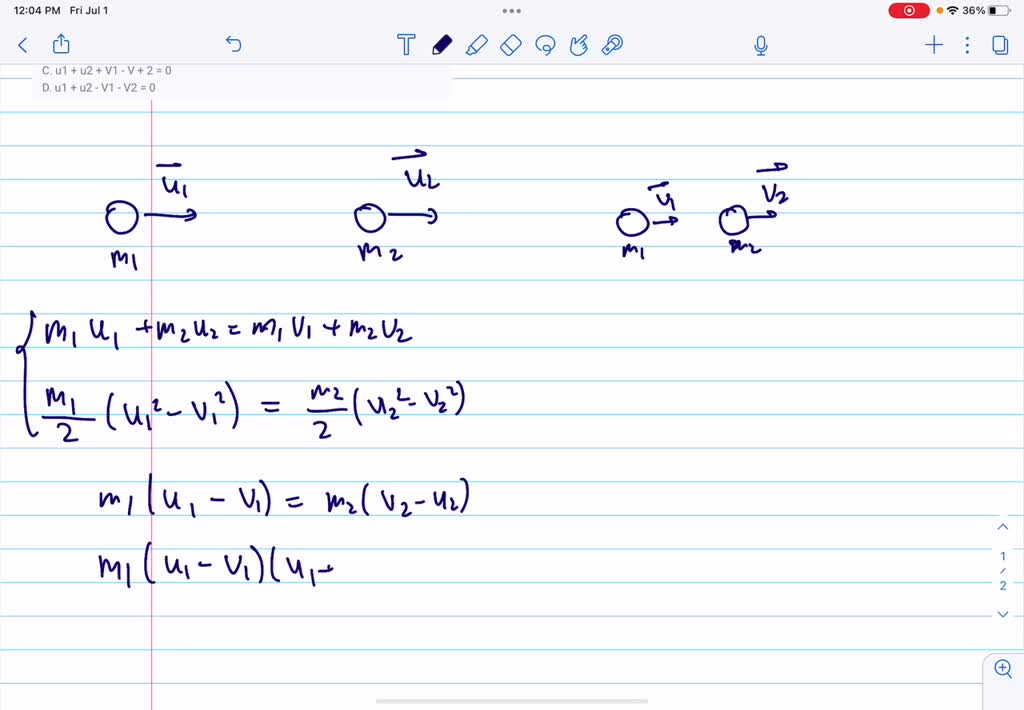 12:04 PM Fri Jul 1
36%
C. u1 + u2 + V1 - V + 2 = 0
D. u1 + u2 - V1 - V2 = 0
u₁ u₂ v₁ v₂
m₁ m₂ m₁ m₂
m₁ u₁ + m₂ u₂ = m₁ v₁ + m₂ v₂
m₁/2 (u₁² - v₁²) = m₂/2 (u₂² - v₂²)
m₁ (u₁ - v₁) = m₂ (v₂ - u₂)
m₁ (u₁ - v₁) (u₁ +
1
/
2